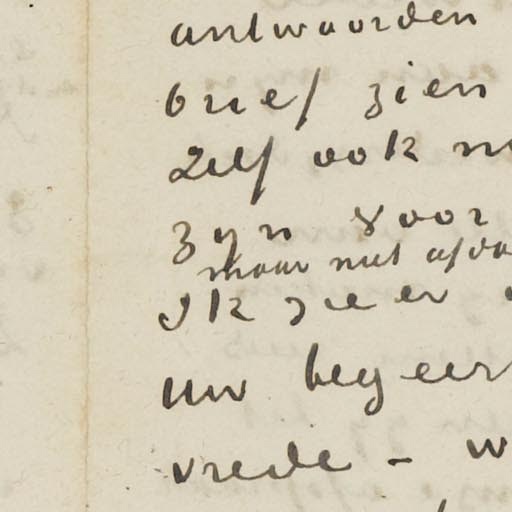 antwoorden
brief zien
zelf ook
zyn voor
maar niet
Ik zie er
uw begeer
vrede – w